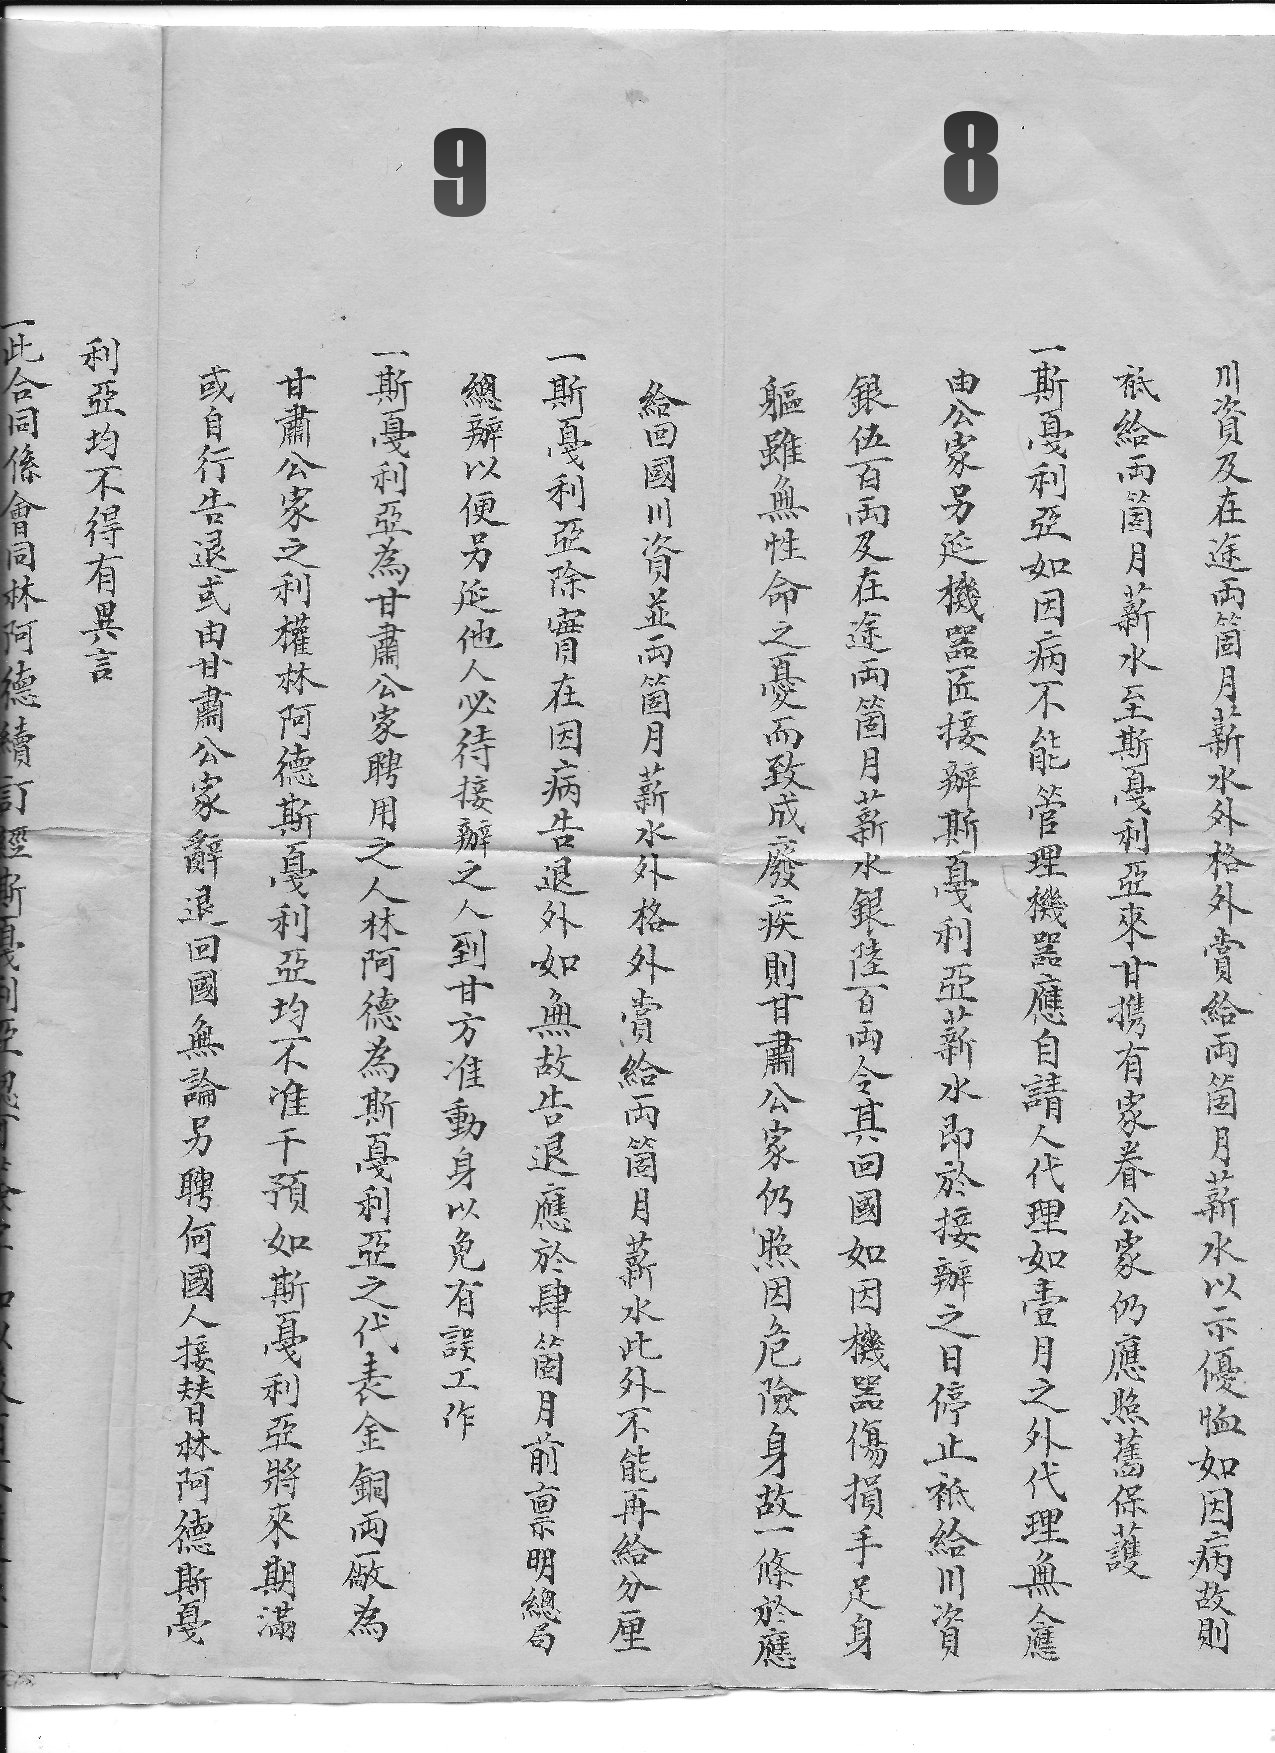 8
川資及在途兩箇月薪水外格外賞給兩箇月薪水以示優恤如因病故則
祇給兩箇月薪水至斯戞利亞來甘携有家眷公家仍應照舊保護
一斯戞利亞如因病不能管理機器應自請人代理如壹月之外代理無人應
由公家另延機器匠接辦斯戞利亞薪水即於接辦之日停止祇給川資
銀伍百兩及在途兩箇月薪水銀陸百兩令其回國如因機器傷損手足身
軀雖無性命之憂而致成廢疾則甘肅公家仍照因危險身故一條於應
9
給回國川資並兩箇月薪水外格外賞給兩箇月薪水此外不能再給分厘
一斯戞利亞除實在因病告退外如無故告退應於肆箇月前稟明總局
總辦以便另延他人必待接辦之人到甘方准動身以免有誤工作
一斯戞利亞為甘肅公家聘用之人林阿德為斯戞利亞之代表金銅兩廠為
甘肅公家之利權林阿德斯戞利亞均不准干預如斯戞利亞將來期滿
或自行告退或由甘肅公家辭退回國無論另聘何國人接替林阿德斯戞
利亞均不得有異言
一此合同係會同林阿德續訂經斯戞利亞